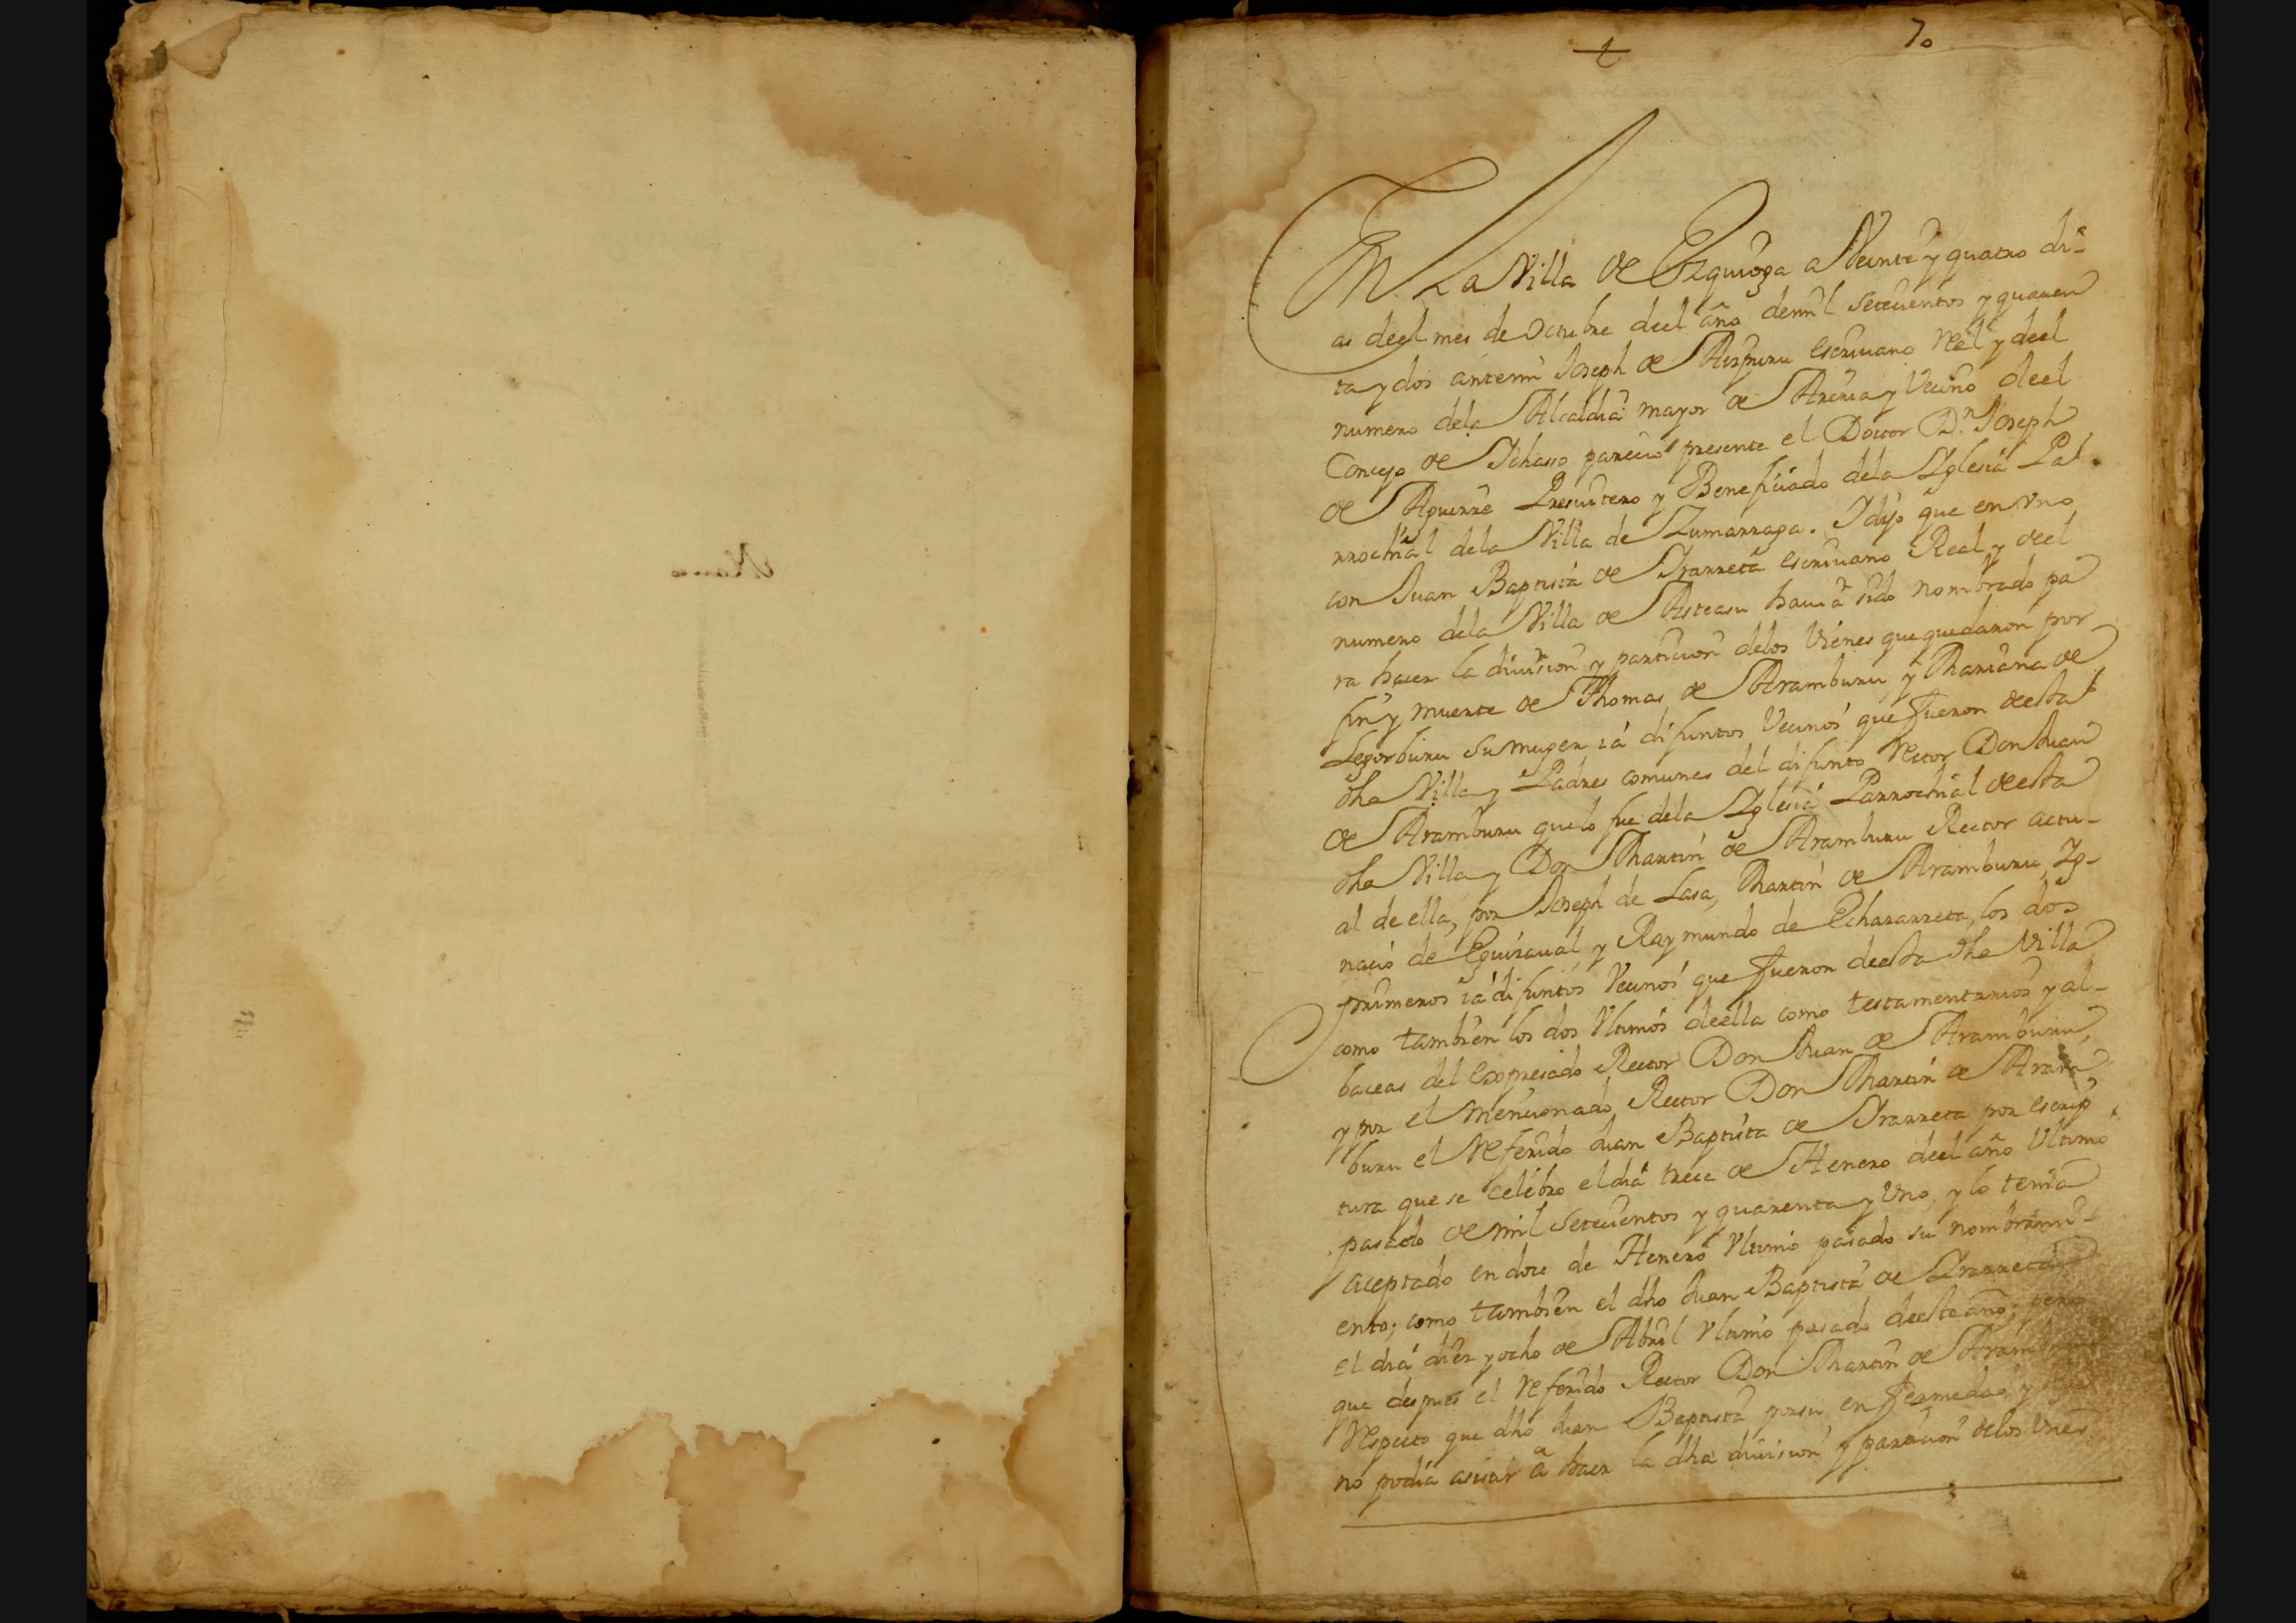 70
En La Villa de Ezquioga a Veinte y quatro di-
as deel mes de Octubre deel año de mil setecientos y quaren
ta y dos ante mi Joseph de Aizpuru escriuano Rel y deel
numero dela Alcaldia mayor de Areria y Vecino deel
Concejo de Ichaso parecio presente el Doctor Dn Joseph
de Aguirre Presuitero y Beneficiado dela Iglesia Pa
rrochial dela Villa de Zumarraga. I dijo que en vno
con Juan Baptista de Irarreta escriuano Real y deel
numero dela Villa de Asteasu hauia sido nombrado pa
ra hacer la diuision y particion delos Vienes que quedaron por
fin y muerte de Thomas de Aramburu y Mariana de
Legorburu su muger ia difuntos Vecinos que fueron deesta
dha Villa y Padres comunes del difunto Rector Don Juan
de Aramburu que lo fue dela Iglesia Parrochial deesta
dha Villa y Don Martin de Aramburu Rector actu-
al de ella, por Joseph de Lasa, Martin de Aramburu, Ig-
nacio de Eguizaual y Raymundo de Echararreta, los dos
primeros ia difuntos Vecinos que fueron deesta dha Villa
como tambien los dos Vltimos deella como testamentarios y al-
baceas del expresado Rector Don Juan de Aramburu,
y por el mencionado Rector Don Martin de Aram
buru el Referido Juan Baptista de Irarreta por escrip
tura que se celebro el dia trece de Henero deel año Vltimo
pasado de mil setecientos y quarenta y Vno, y lo tenia
aceptado en doce de Henero Vltimo pasado su nombrami-
ento; como tambien el dho Juan Baptista de Irarreta
el dia diez y ocho de Abril Vltimo pasado deeste año; pero
que despues el Referido Rector Don Martin de Aramburu
Respecto que dho Juan Baptista por su enfermedad y
no podia asistir a hacer la dha diuision y particion delos Vienes